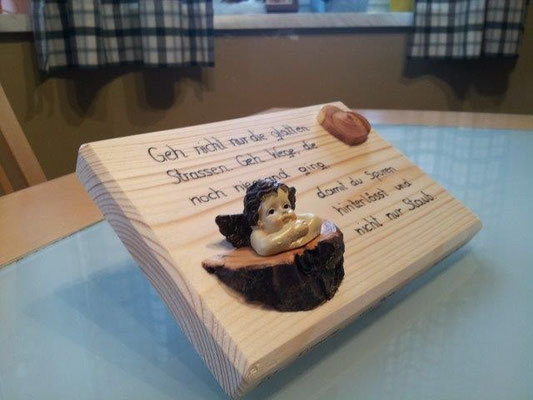 Geh nicht nur die glatten
Strassen. Geh Wege, die
noch niemand ging
damit du Spuren
hinterlässt und
nicht nur Staub